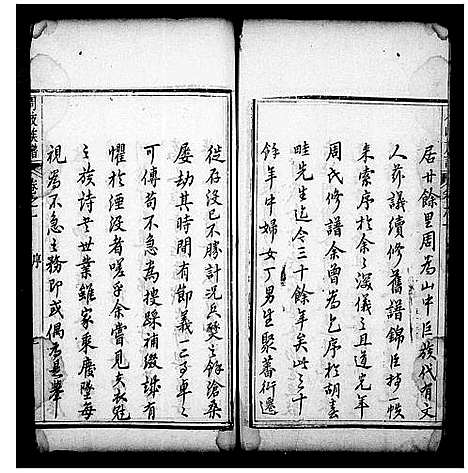 居廿餘里周為山中巨族代有文
人茲議續修舊譜錦臣持一帙
來索序於余余深儀之且道光年
周氏修譜余曾為乞序於胡春
畦先生迄今三十餘年矣此三十
餘年中婦女丁男生聚蕃衍遷
徙存沒已不勝計況兵燹之餘滄桑
屢劫其時間有節義一二事卓卓
可傳苟不急為搜踩補綴誠有
懼於湮沒者嗟乎余嘗見夫衣冠
之族詩書世業雖家乘廢墜每
視為不急之務即或偶為是舉
族譜
卷之一
序